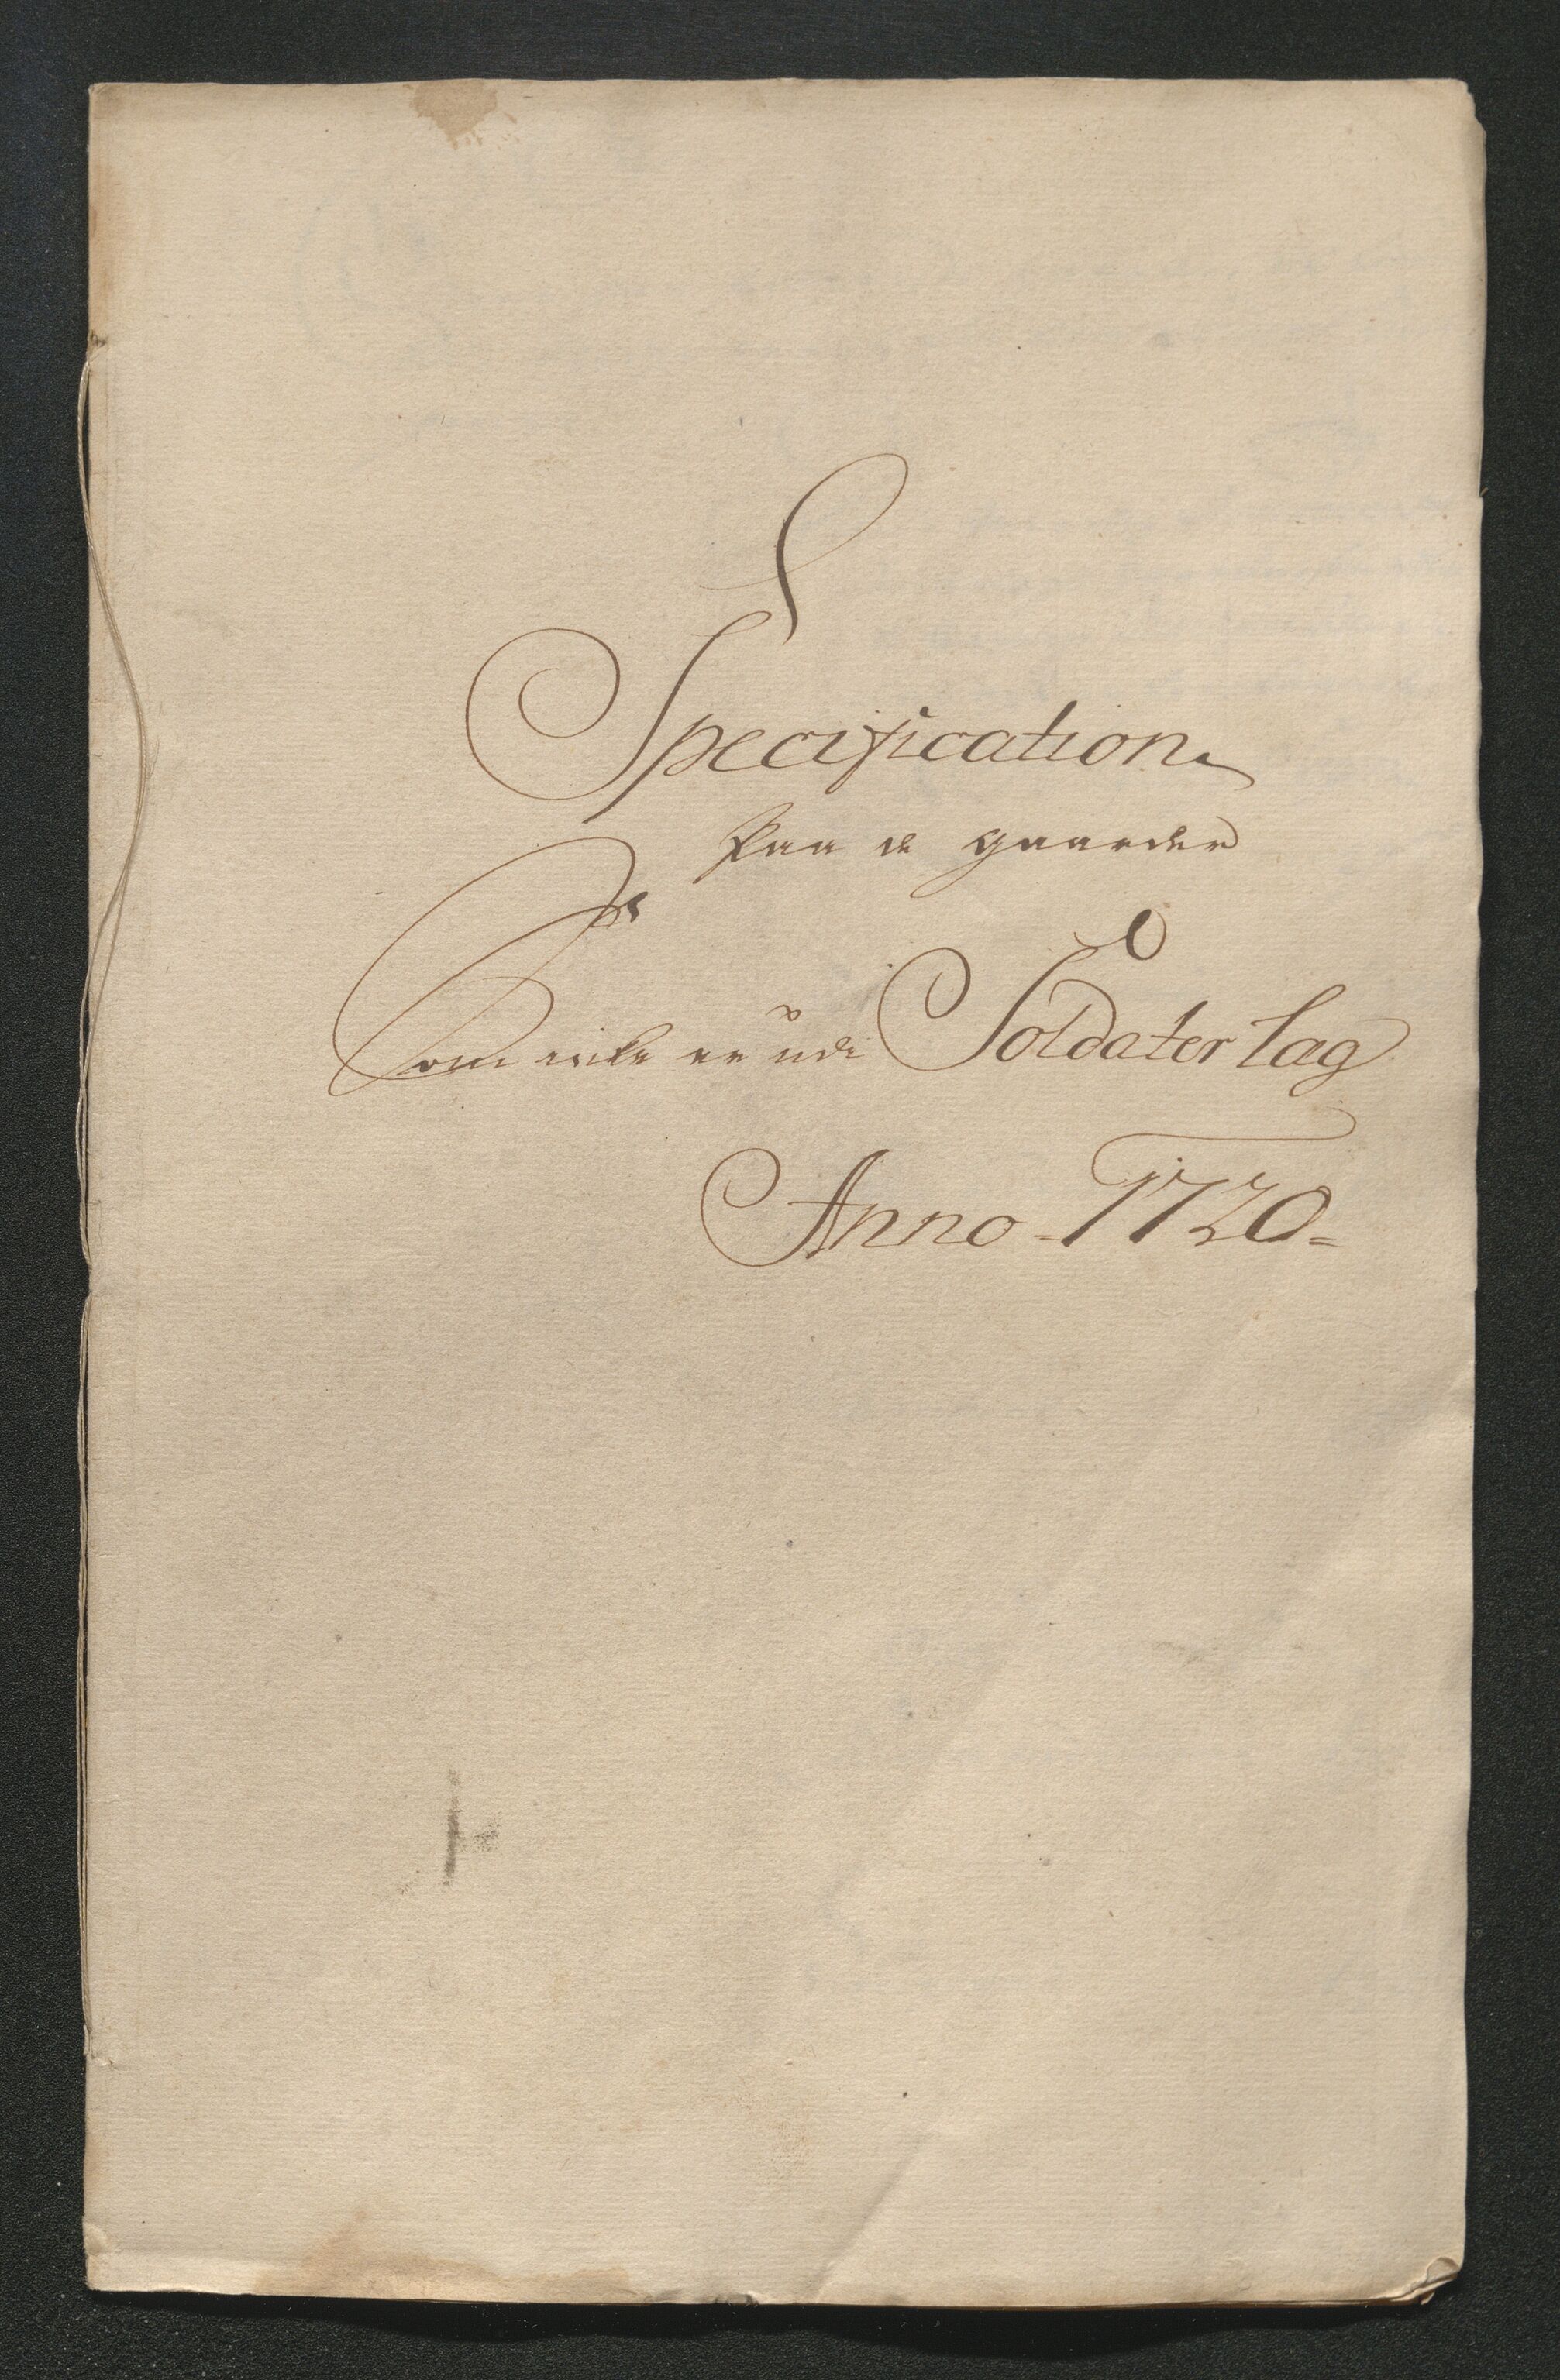 Specification
Paa de gaarder
Som icke er udi Soldater lag
Anno-1720=